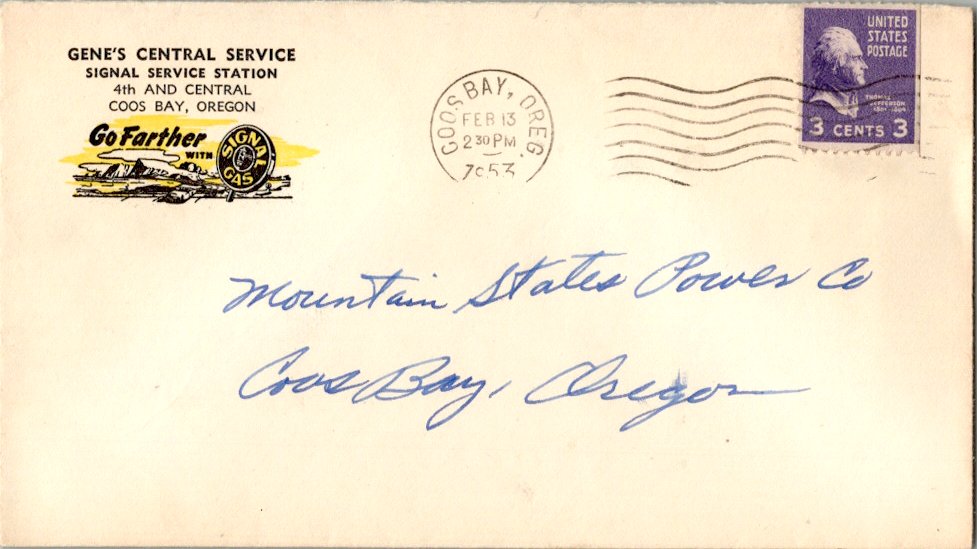 GENE'S CENTRAL SERVICE
SIGNAL SERVICE STATION
4th AND CENTRAL
COOS BAY, OREGON
Go Farther
WITH
SIGNAL
GAS
COOS BAY, OREG.
FEB 13
2 30 PM
1953
UNITED
STATES
POSTAGE
THOMAS
JEFFERSON
1801-1809
3 CENTS 3
Mountain States Power Co
Coos Bay, Oregon